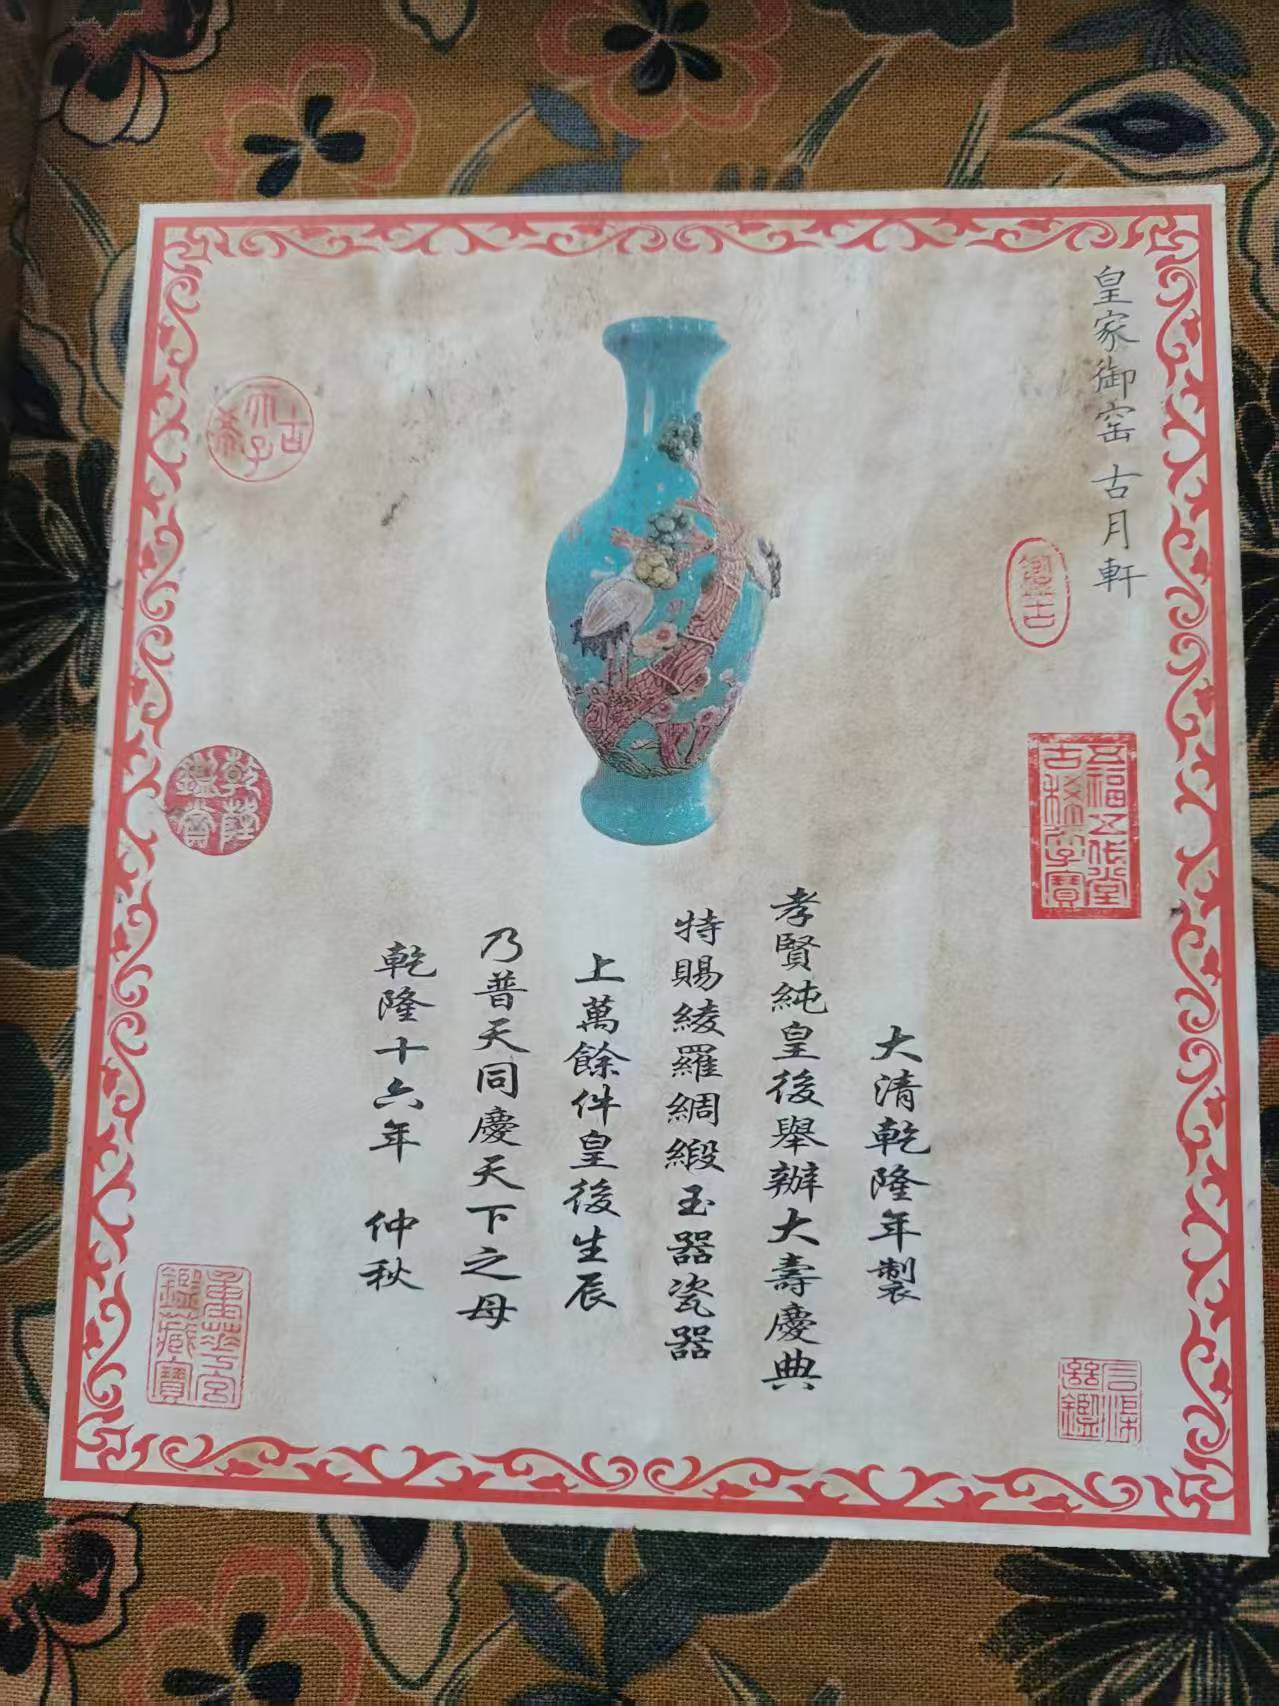 皇家御窑 古月軒
大清乾隆年製
孝賢純皇後舉辦大壽慶典
特賜綾羅綢緞玉器瓷器
上萬餘件皇後生辰
乃普天同慶天下之母
乾隆十六年 仲秋
古希天子
鑑古
五福五代堂古稀天子寶
乾隆鑑賞
重華宮鑑藏寶
三希堂